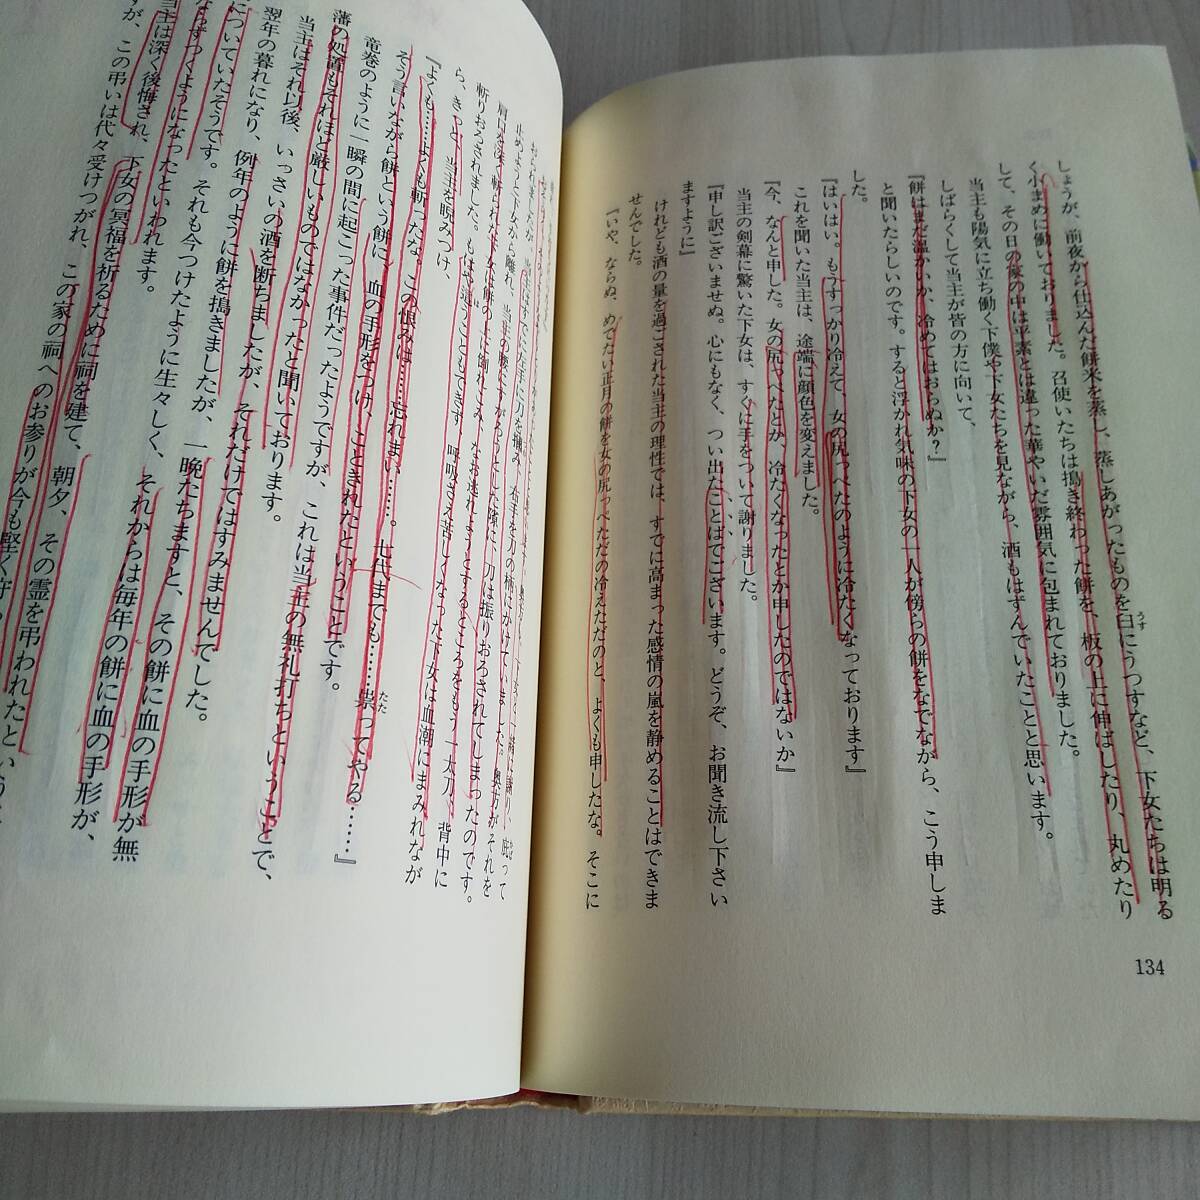 しょうが、前夜から仕込んだ餅米を蒸し、蒸しあがったものを臼にうつすなど、下女たちは明る
く小まめに働いておりました。召使いたちは搗き終わった餅を、板の上に伸ばしたり、丸めたり
して、その日の家の中は平素とは違った華やいだ雰囲気に包まれておりました。
当主も陽気に立ち働く下僕や下女たちを見ながら、酒もはずんでいたことと思います。
しばらくして当主が皆の方に向いて、
『餅はまだ温かいか、冷めてはおらぬか？』
と聞いたらしいのです。すると浮かれ気味の下女の一人が傍らの餅をなでながら、こう申しま
した。
『はいはい。もうすっかり冷えて、女の尻っぺたのように冷たくなっております』
これを聞いた当主は、途端に顔色を変えました。
『今、なんと申した。女の尻っぺたとか、冷たくなったとか申したのではないか』
当主の剣幕に驚いた下女は、すぐに手をついて謝りました。
『申し訳ございませぬ。心にもなく、つい出たことばでございます。どうぞ、お聞き流し下さい
ますように』
けれども酒の量を過ごされた当主の理性では、すでに高まった感情の嵐を静めることはできま
せんでした。
『いや、ならぬ、めでたい正月の餅を女の尻っぺただの冷えただのと、よくも申したな。そこに
134
止めようと下女から離れ、当主の腰にすがろうとした隙に、刀は振りおろされてしまったのです。
肩口を深く斬られた下女は餅の上に
斬りおろされました。もはや這うこともできず、呼吸さえ苦しくなった下女は血潮にまみれなが
ら、きっと、当主を睨みつけ、
『よくも……よくも斬ったな、この恨みは……忘れまい……。七代までも……祟ってやる……』
そう言いながら餅という餅に、血の手形をつけ、こときれたということです。
竜巻のように一瞬の間に起こった事件だったようですが、これは当主の無礼打ちということで、
藩の処置もそれほど厳しいものではなかったと聞いております。
当主はそれ以後、いっさいの酒を断ちましたが、それだけではすみませんでした。
翌年の暮れになり、例年のように餅を搗きましたが、一晩たちますと、その餅に血の手形が無
についていたそうです。それも今つけたように生々しく、それからは毎年の餅に血の手形が、
ならずつくようになったといわれます。
当主は深く後悔され、下女の冥福を祈るために祠を建て、朝夕、その霊を弔われたとい
が、この弔いは代々受けつがれ、この家の祠へのお参りが今も堅く守